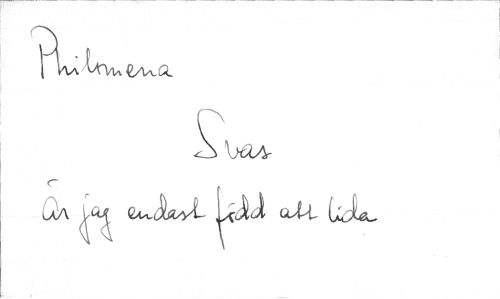 Philomena
Svas
Är jag endast född att lida